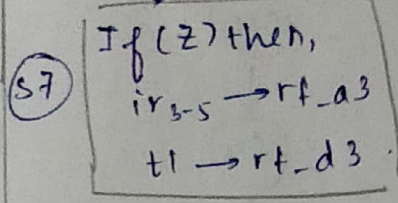 S7
If (Z) then,
ir3-5 → rf_a3
t1 → rf_d3.